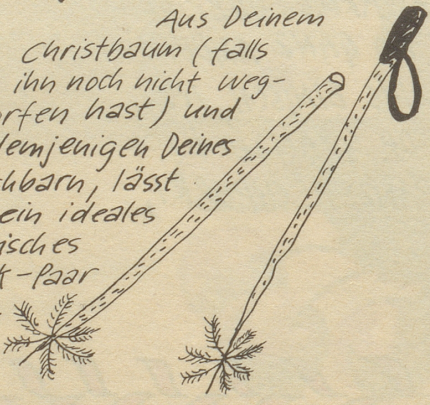 Aus Deinem
Christbaum (falls
ihn noch nicht weg-
orfen hast) und
demjenigen Deines
chbarn, lässt
ein ideales
isches
k-Paar